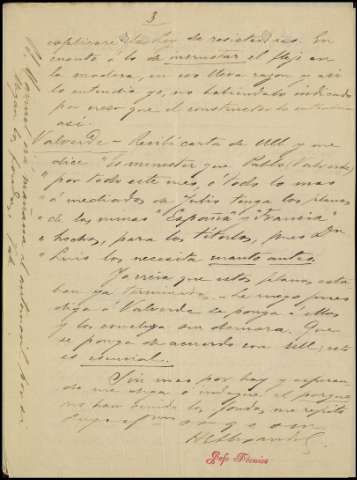 3
explicare la ley de rosieterios. En
cuanto á lo de incrustar el fleje en
la madera, en eso lleva razon y asi
lo entendia yo, no habiendolo indicado
por creer que el constructor lo entenderia
asi
Valverde - Recibi carta de Ull y me
dice "Es menester que Pablo (Valverde)
" por todo este mes, ó todo lo mas
" á mediados de Julio tenga los planos
" de las minas "España y Francia"
" hechos, para los titulos, pues Don
" Luis los necesita cuanto antes
Yo creia que estos planos esta
ban ya terminados. Le ruego pues
diga á Valverde se ponga á ellos
y los concluya sin demora. Que
se ponga de acuerdo con Ull; esto
es esencial.
Sin mas por hoy y esperan
do me diga ó indique el porque
no han venido los fondos, me repito
suyo
Jefe Técnico